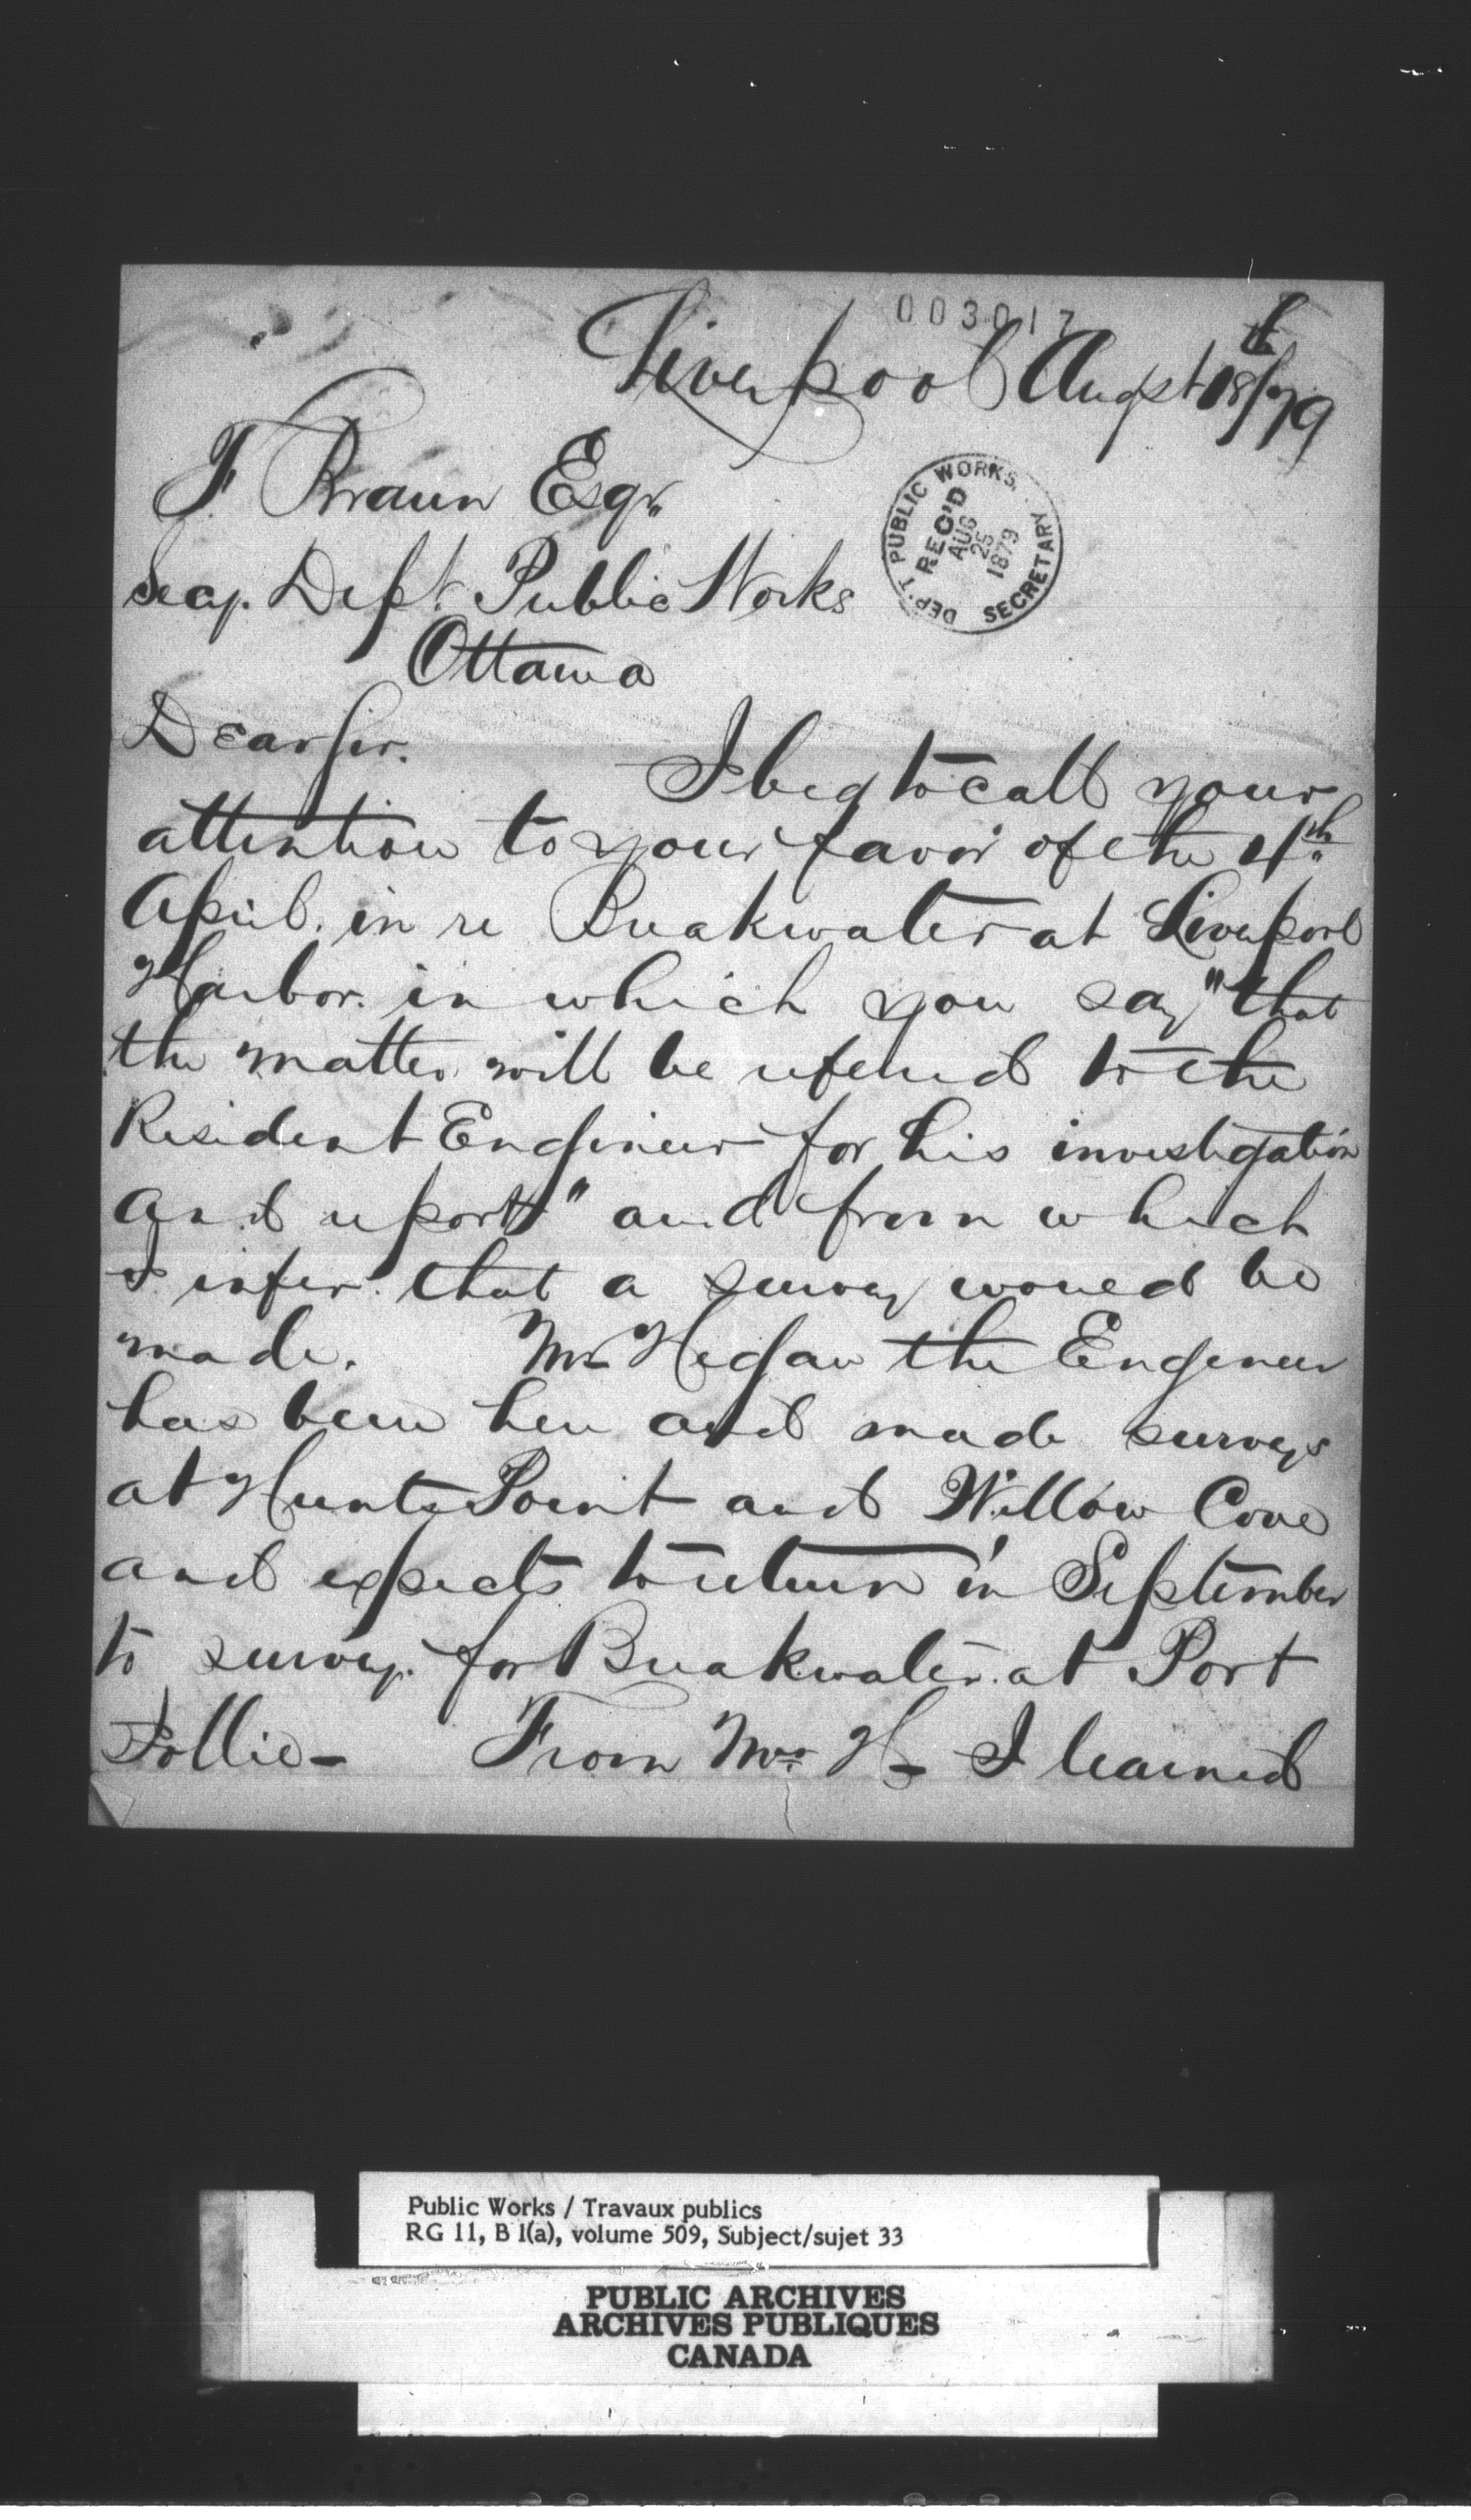 003017
Liverpool Augst 18th/79
F. Braun Esqr.
Secy. Dept. Public Works
Ottawa
DEP'T PUBLIC WORKS.
REC'D
AUG
25
1879
SECRETARY
Dear Sir.
I beg to call your
attention to your favor of the 4th
April. in re Breakwater at Liverpool
Harbor. in which you say "that
the matter will be referred to the
Resident Engineer for his investigation
and report" and from which
I infer that a survey would be
made. Mr Hegan the Engineer
has been here and made surveys
at Hunts Point and Willow Cove
and expects to return in September
to survey for Breakwater at Port
Jollie - From Mr. H - I learned
Public Works / Travaux publics
RG 11, B 1(a), volume 509, Subject/sujet 33
PUBLIC ARCHIVES
ARCHIVES PUBLIQUES
CANADA